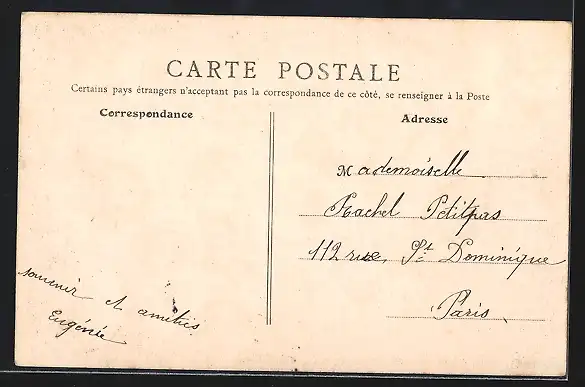 CARTE POSTALE
Certains pays étrangers n'acceptant pas la correspondance de ce côté, se renseigner à la Poste
Correspondance
Adresse
Mademoiselle
Rachel Petitpas
112 rue, St Dominique
Paris.
souvenir et amitiés.
Eugénie